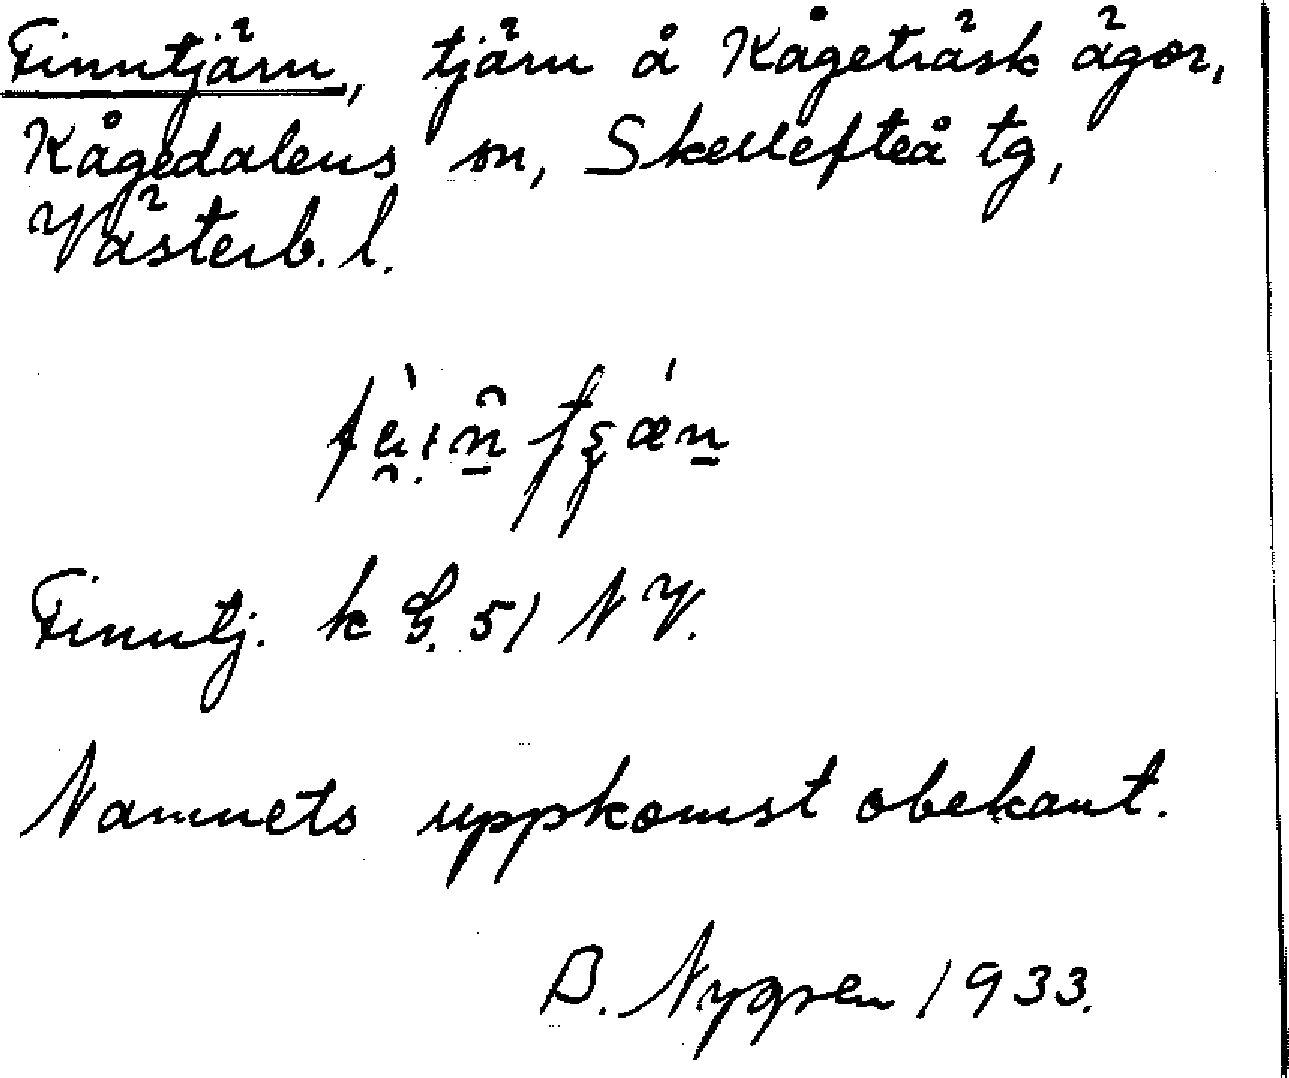 Finntjärn, tjärn å Kågeträsk ägor,
Kågedalens sn, Skellefteå tg,
Västerb. l.
Finntj. k bl. 51 NV.
Namnets uppkomst obekant.
B. Nygren 1933.